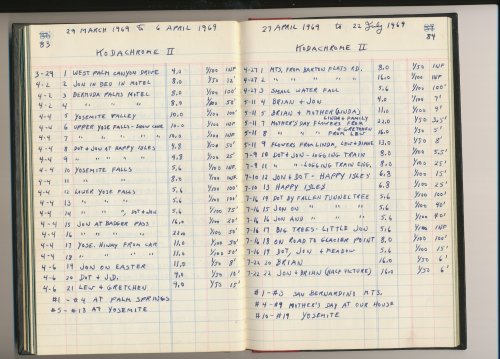 83
29 MARCH 1969 to 6 APRIL 1969
KODACHROME II
3-29 1 WEST PALM CANYON DRIVE 4.0 1/100 INF
4-2 2 JON IN BED IN MOTEL 8.0 1/50 12'
4-2 3 BERMUDA PALMS MOTEL 8.0 1/100 100'
4-2 4 " " " 8.0 1/100 50'
4-4 5 YOSEMITE VALLEY 10.0 1/100 INF
4-4 6 UPPER YOSE FALLS - SNOW CONE 10.0 1/100 INF
4-4 7 " " " " 1/100 INF
4-4 8 DOT & JON AT HAPPY ISLES 4.8 1/100 50'
4-4 9 " " " " " 4.8 1/100 25'
4-4 10 YOSEMITE FALLS 8.0 1/100 INF
4-4 11 " " 8.0 1/100 INF
4-4 12 LOWER YOSE FALLS 5.6 1/100 100'
4-4 13 " " " 5.6 1/100 100'
4-4 14 " " ", DOT & JON 5.6 1/100 75'
4-4 15 JON AT BADGER PASS 16.0 1/100 20'
4-4 16 " " " " 22.0 1/100 50'
4-4 17 YOSE. HIWAY FROM CAR 11.0 1/100 50'
4-4 18 " " " " 11.0 1/100
4-6 19 JON ON EASTER 11.0 1/50 8'
4-6 20 DOT & J.D. 4.0 1/50 10'
4-6 21 LEW & GRETCHEN 4.0 1/50 15'
#1 - #4 AT PALM SPRINGS
#5 - #18 AT YOSEMITE
84
27 APRIL 1969 to 22 July 1969
KODACHROME II
4-27 1 MTS. FROM BARTON FLATS RD. 8.0 1/50 INF
4-27 2 " " " " " 16.0 1/100 INF
4-27 3 SMALL WATER FALL 5.6 1/100 100'
5-11 4 BRIAN & JON 4.0 1/100 7'
5-11 5 BRIAN & MOTHER (LINDA) 11.0 1/100 9'
5-11 7 MOTHER'S DAY FLOWERS FROM LINDA & FAMILY 22.0 1/50 3.5'
5-11 8 " " " & GRETCHEN FROM LEW 16.0 1/50 5'
5-11 9 FLOWERS FROM LINDA, LEW & DIANE 13.0 1/50 8'
7-19 10 DOT & JON - LOGGING TRAIN 8.0 1/100 5.5'
7-19 11 " " - LOGGING TRAIN ENG. 8.0 1/100 25'
7-16 12 JON & DOT - HAPPY ISLES 6.8 1/100 15'
7-16 13 HAPPY ISLES 6.8 1/100 25'
7-16 14 DOT BY FALLEN TUNNEL TREE 5.6 1/100 100'
7-16 15 JON ON " " " 5.6 1/100 40'
7-16 16 JON AND " " " 5.6 1/100 80'
7-16 17 BIG TREES - LITTLE JON 5.6 1/100 INF
7-18 18 ON ROAD TO GLACIER POINT 8.0 1/100 100'
7-18 19 DOT, JON & MEADOW 5.6 1/100 15'
7-22 20 BRIAN 16.0 1/50 6'
7-22 22 JON & BRIAN (HALF PICTURE) 16.0 1/50 6'
#1 - #3 SAN BERNARDINO MTS.
#4 - #9 MOTHER'S DAY AT OUR HOUSE
#10 - #19 YOSEMITE